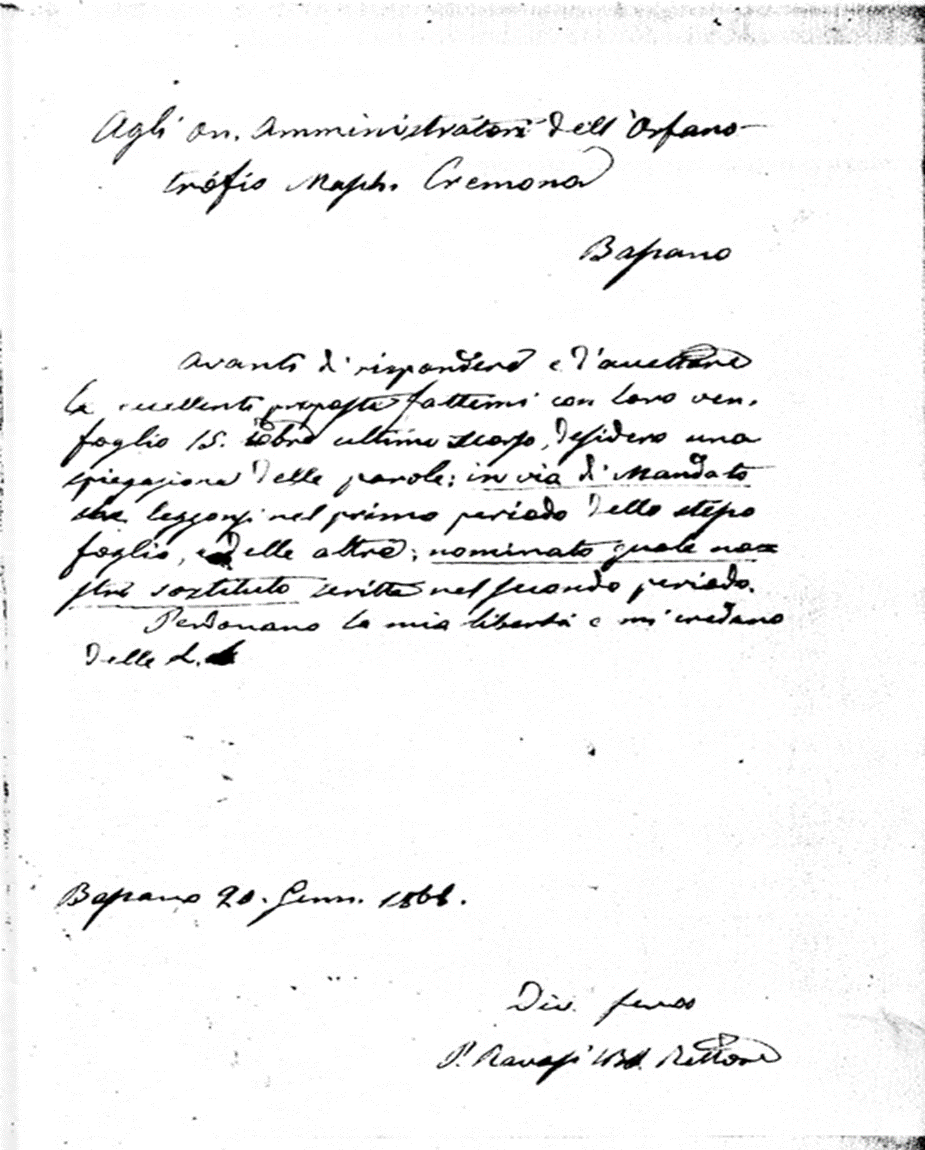 Agli on. Amministratori dell'Orfano-
trofio Masch. Cremona
Bassano
Avanti di rispondere e d'accettare
le eccellenti proposte fattemi con loro ven.
foglio 15. Xbre ultimo scorso, desidero una
spiegazione delle parole: in via di Mandato
che leggonsi nel primo periodo dello stesso
foglio, e delle altre; nominato quale no=
stro sostituto scritte nel secondo periodo.
Perdonano la mia libertà e mi credano
delle L.
Bassano 20. Genn. 1866.
Div. servo
P. Ravasi Rettore